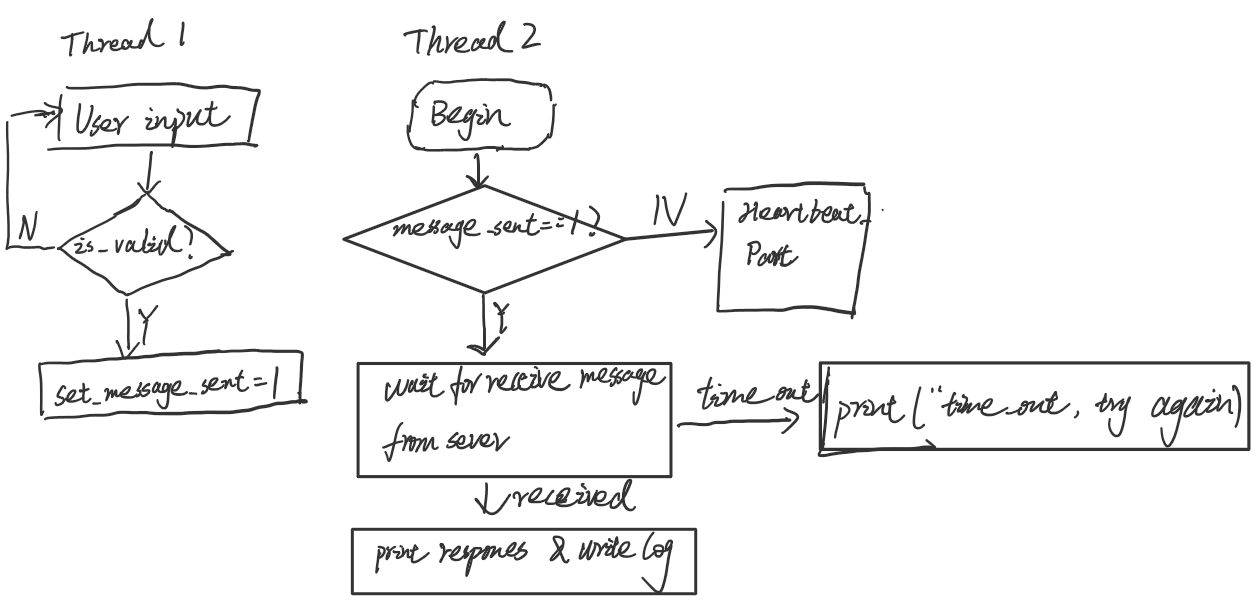 Thread 1
User input
N
is_valid?
Y
set_message_sent=1
Thread 2
Begin
message_sent==1?
N
Heartbeat
Part
Y
wait for receive message
from sever
time out
print("time out, try again)
received
print respones & write log